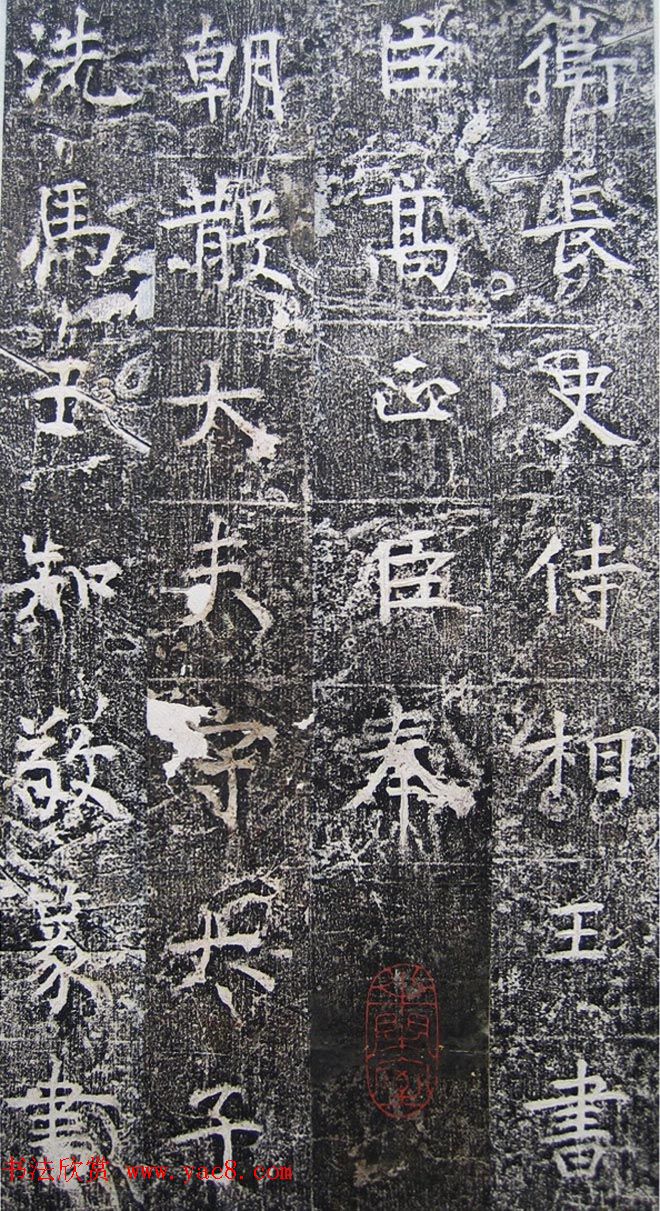 衛長史侍相王書
臣髙正臣奉
朝散大夫守太子
洗馬王知敬篆書
书法欣赏 www.yac8.com